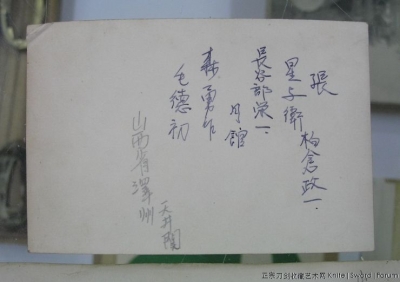 張
星与衛 柏倉政一.
長谷部栄一.
月舘
森勇作
毛德初
山西省澤州
天井関
正宗刀剑收藏艺术网 Knife | Sword | Forum